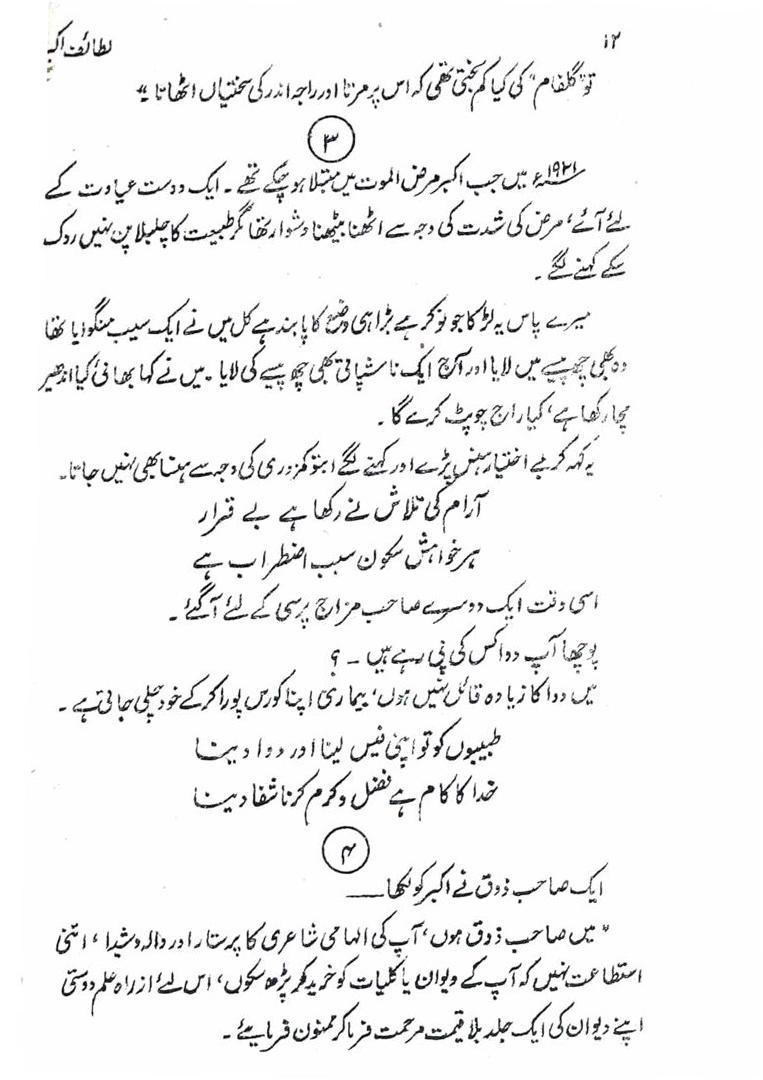 ۱۲
لطائف اکبر
تو "گلفام" کی کیا کم بختی تھی کہ اس پر مرتا اور راجہ اندر کی سختیاں اٹھاتا۔"
۳
۱۹۲۱ء میں جب اکبر مرض الموت میں مبتلا ہو چکے تھے۔ ایک دوست عیادت کے
لئے آئے، مرض کی شدت کی وجہ سے اٹھنا بیٹھنا دشوار تھا مگر طبیعت کا چلبلا پن نہیں روک
سکے کہنے لگے۔
میرے پاس یہ لڑکا جو نوکر ہے بڑا ہی وضع کا پابند ہے کل میں نے ایک سیب منگوایا تھا
وہ بھی چھ پیسے میں لایا اور آج ایک ناشپاتی بھی چھ پیسے کی لایا۔ میں نے کہا بھائی کیا اندھیر
مچا رکھا ہے، کیا راج چوپٹ کرے گا۔
یہ کہہ کر بے اختیار ہنس پڑے اور کہنے لگے اب تو کمزوری کی وجہ سے ہنسا بھی نہیں جاتا۔
آرام کی تلاش نے رکھا ہے بے قرار
ہر خواہش سکون سبب اضطراب ہے
اسی وقت ایک دوسرے صاحب مزاج پرسی کے لئے آگئے۔
پوچھا آپ دوا کس کی پی رہے ہیں ۔ ؟
میں دوا کا زیادہ قائل نہیں ہوں، بیماری اپنا کورس پورا کرکے خود چلی جاتی ہے۔
طبیبوں کو تو اپنی فیس لینا اور دوا دینا
خدا کا کام ہے فضل و کرم کرنا شفا دینا
۴
ایک صاحب ذوق نے اکبر کو لکھا ــــــ
"میں صاحب ذوق ہوں، آپ کی الہامی شاعری کا پرستار اور والہ و شیدا، اتنی
استطاعت نہیں کہ آپ کے دیوان یا کلیات کو خرید کر پڑھ سکوں، اس لئے از راہ علم دوستی
اپنے دیوان کی ایک جلد بلا قیمت مرحمت فرما کر ممنون فرمایئے۔